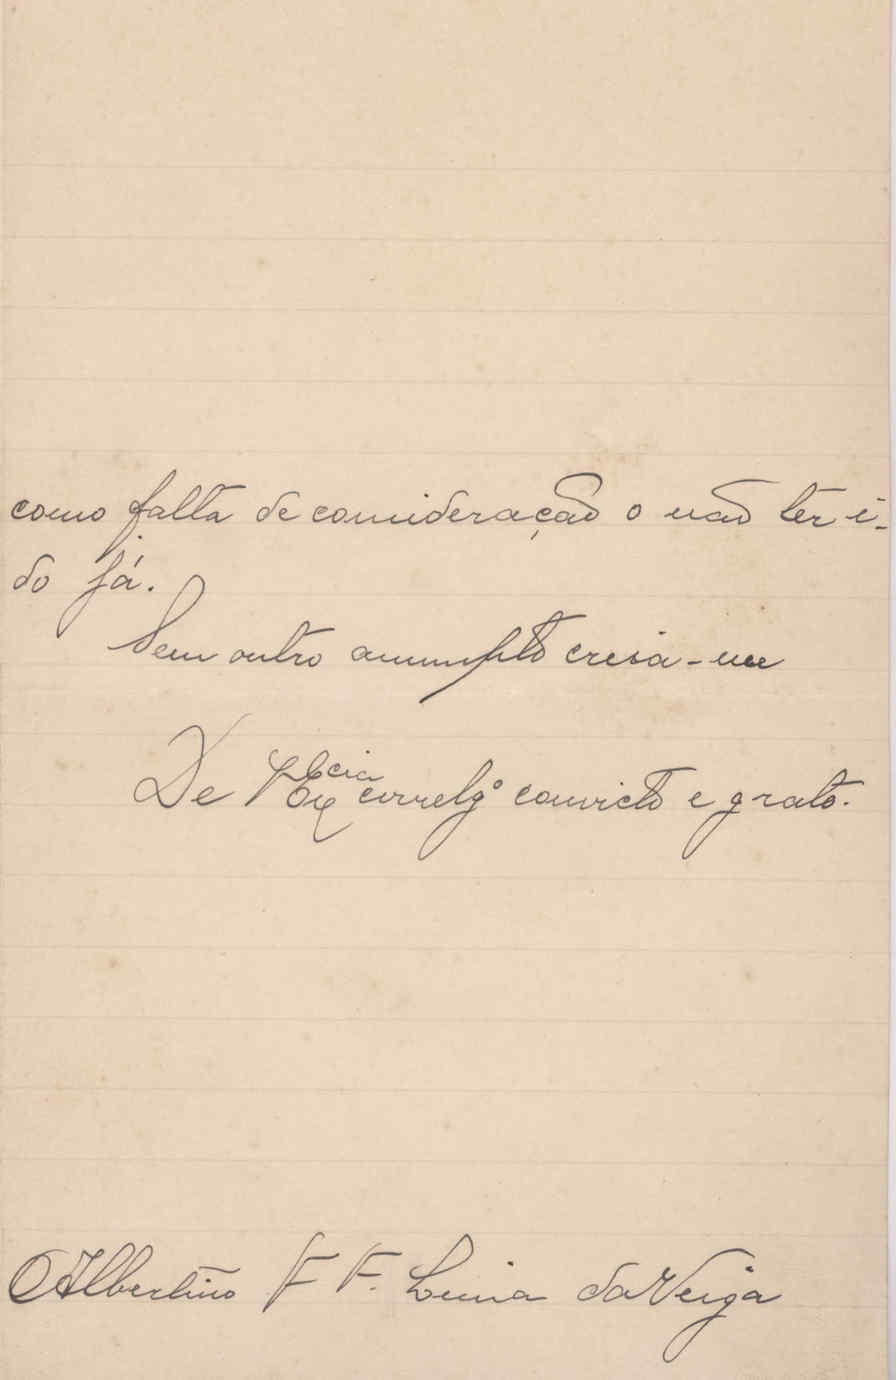 como falta de consideração o não ter i-
do já.
Sem outro assumpto creia-me
De V Excia correlgº convicto e grato.
Albertino F F. Lima da Veiga